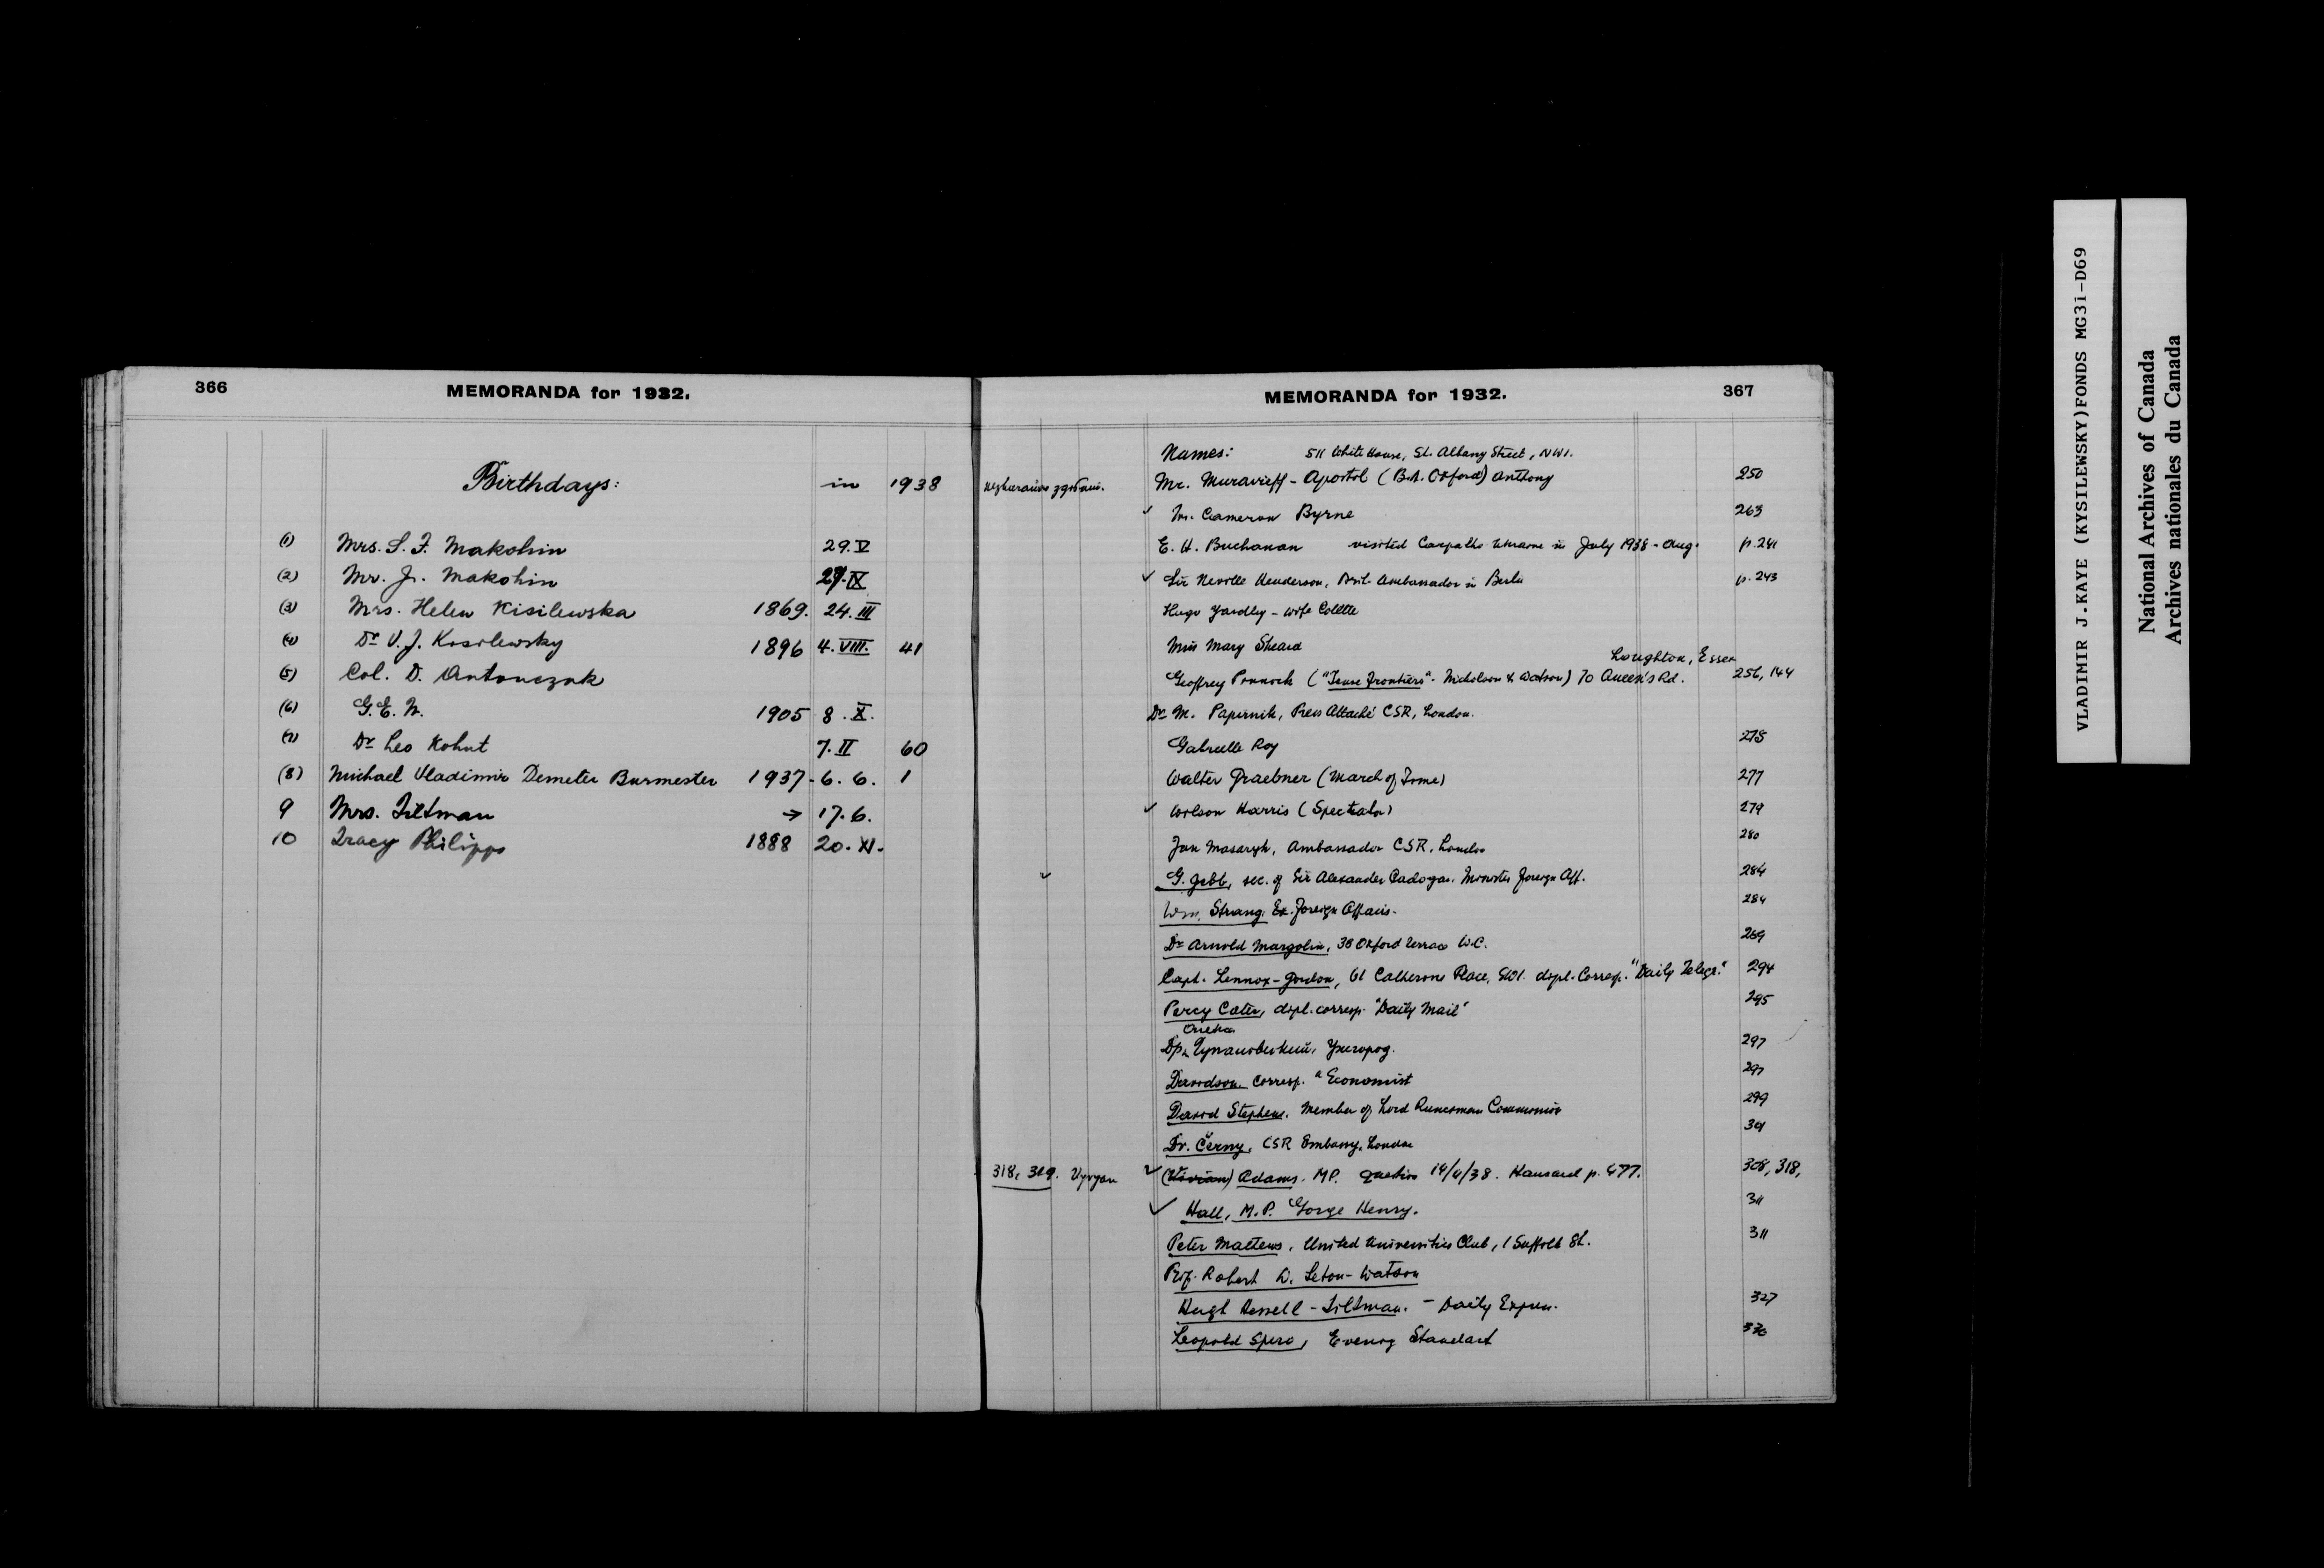 366
MEMORANDA for 1932.
Birthdays: in 1938
(1) Mrs. S. F. Makohin 29.V
(2) Mr. J. Makohin 27.IX
(3) Mrs. Helen Kisilewska 1869. 24.III
(4) Dr V. J. Kisilewsky 1896 4.VIII. 41
(5) Col. D. Antonczuk
(6) G.E.W. 1905 8.X.
(7) Dr Leo Kohut 7.II 60
(8) Michael Vladimir Demeter Burmester 1937-6.6. 1
9 Mrs. Tiltman → 17.6.
10 Tracy Philipps 1888 20.XI.
MEMORANDA for 1932.
367
Names: 511 White House, St. Albany Street, NW1.
Mr. Muravieff-Apostol (B.A. Oxford) Anthony 250
✓ Cameron Byrne 263
E. H. Buchanan visited Carpatho Ukraine in July 1938-Aug. p.241
✓ Sir Neville Henderson, Brit. Ambassador in Berlin p.243
Hugo Yardley - wife Colette
Miss Mary Sheard
Loughton, Essex
Geoffrey ("Tense Frontiers" - Nicholson & Watson) 70 Queen's Rd. 256, 144
Dr M. Papirnik, Press Attaché CSR, London.
Gabrielle Roy 275
Walter Graebner (March of Time) 277
✓ Wilson Harris (Spectator) 279
Jan Masaryk, Ambassador CSR, London 280
✓ G. Jebb, sec. of Sir Alexander Cadogan. Minister Foreign Aff. 284
Wm. Strang. Foreign Affairs. 284
Dr Arnold Margolin, 38 Oxford Terrace W.C. 269
Capt. Lennox-Gordon, 61 Catherine Place, SW1. dipl. Corresp. "Daily Telegr." 294
Percy Cater, dipl. corresp. "Daily Mail" 295
Др. Ужгород. 297
Davidson. Corresp. "Economist 297
David Stephens. Member of Lord Runciman Commission 299
Dr. Černy, CSR Embassy, London 301
318, 319. Vyvyan ✓ (Vivian) Adams. MP. question 14/4/38. Hansard p. 477. 308, 318,
✓ Hall, M.P. George Henry. 311
Peter Mattews, United Universities Club, 1 Suffolk St. 311
Prof. Robert W. Seton-Watson
Hugh Hessell-Tiltman. - Daily Expres. 327
Leopold Spero, Evening Standart 336
VLADIMIR J.KAYE (KYSILEWSKY)FONDS MG31-D69
National Archives of Canada
Archives nationales du Canada